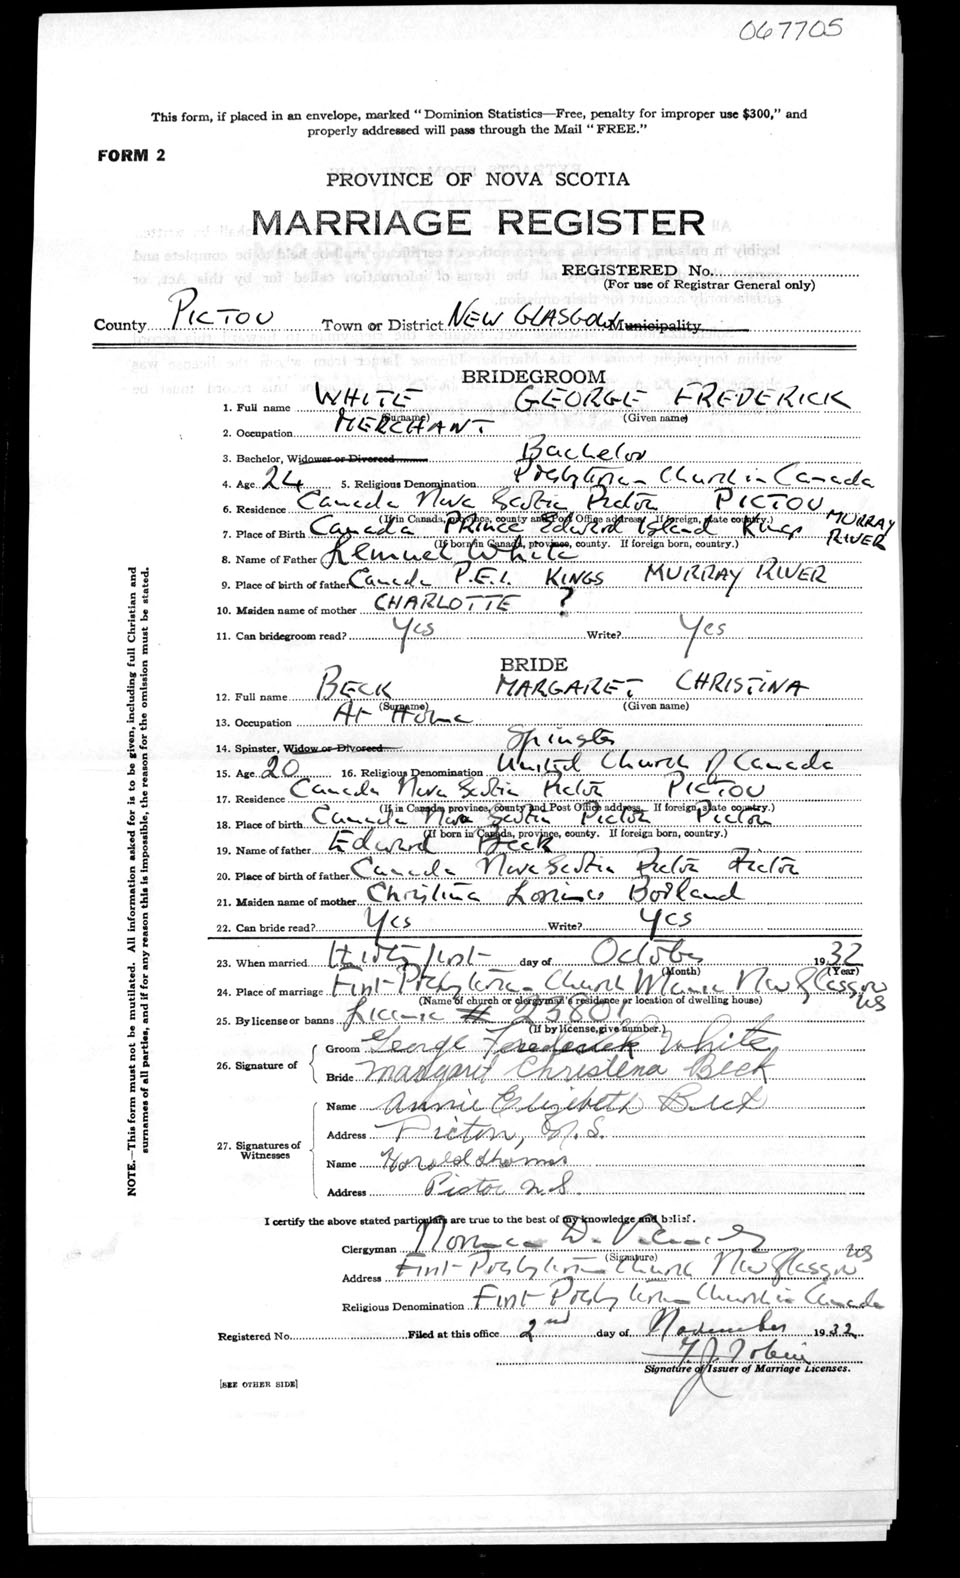 067705
This form, if placed in an envelope, marked "Dominion Statistics—Free, penalty for improper use $300," and
properly addressed will pass through the Mail "FREE."
FORM 2
PROVINCE OF NOVA SCOTIA
MARRIAGE REGISTER
REGISTERED No.
(For use of Registrar General only)
County PICTOU Town or District NEW GLASGOW Municipality
BRIDEGROOM
1. Full name WHITE GEORGE FREDERICK
(Surname) (Given name)
2. Occupation MERCHANT
3. Bachelor, Widower or Divorced Bachelor
4. Age 24 5. Religious Denomination Presbyterian Church in Canada
6. Residence Canada Nova Scotia Pictou PICTOU
(If in Canada, province, county and Post Office address. If foreign, state country.)
7. Place of Birth Canada Prince Edward Island Kings MURRAY RIVER
(If born in Canada, province, county. If foreign born, country.)
8. Name of Father Lemuel White
9. Place of birth of father Canada P.E.I. KINGS MURRAY RIVER
10. Maiden name of mother CHARLOTTE ?
11. Can bridegroom read? Yes Write? Yes
BRIDE
12. Full name BECK MARGARET CHRISTINA
(Surname) (Given name)
13. Occupation At Home
14. Spinster, Widow or Divorced Spinster
15. Age 20 16. Religious Denomination United Church of Canada
17. Residence Canada Nova Scotia Pictou PICTOU
(If in Canada, province, county and Post Office address. If foreign, state country.)
18. Place of birth Canada Nova Scotia Pictou Pictou
(If born in Canada, province, county. If foreign born, country.)
19. Name of father Edward Beck
20. Place of birth of father Canada Nova Scotia Pictou Pictou
21. Maiden name of mother Christina Borland
22. Can bride read? Yes Write? Yes
23. When married thirty first day of October 1932
(Month) (Year)
24. Place of marriage First Presbyterian Church Manse New Glasgow NS
(Name of church or clergyman's residence or location of dwelling house)
25. By license or banns License # 23801
(If by license, give number.)
26. Signature of
Groom George Frederick White
Bride Margaret Christena Beck
27. Signatures of Witnesses
Name Annie Elizabeth Beck
Address Pictou, N.S.
Name Harold Thomas
Address Pictou N.S.
I certify the above stated particulars are true to the best of my knowledge and belief.
Clergyman D.
(Signature)
Address First Presbyterian Church New Glasgow NS
Religious Denomination First Presbyterian Church in Canada
Registered No. Filed at this office 2nd day of November 1932
F. J. Tobin
Signature of Issuer of Marriage Licenses.
[SEE OTHER SIDE]
NOTE.—This form must not be mutilated. All information asked for is to be given, including full Christian and
surnames of all parties, and if for any reason this is impossible, the reason for the omission must be stated.